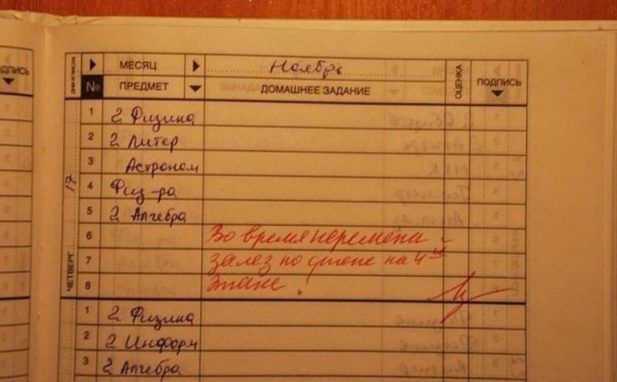 МЕСЯЦ Ноябрь
№ ПРЕДМЕТ ДОМАШНЕЕ ЗАДАНИЕ ОЦЕНКА ПОДПИСЬ
ПОДПИСЬ
ЧЕТВЕРГ 17
1 2 Физика
2 2 Литер
3 Астроном
4 Физ-ра
5 2 Алгебра
6 Во время перемены
7 залез по стене на 4ый
8 этаж!
1 2 Физика
2 2 Информ
3 2 Алгебра